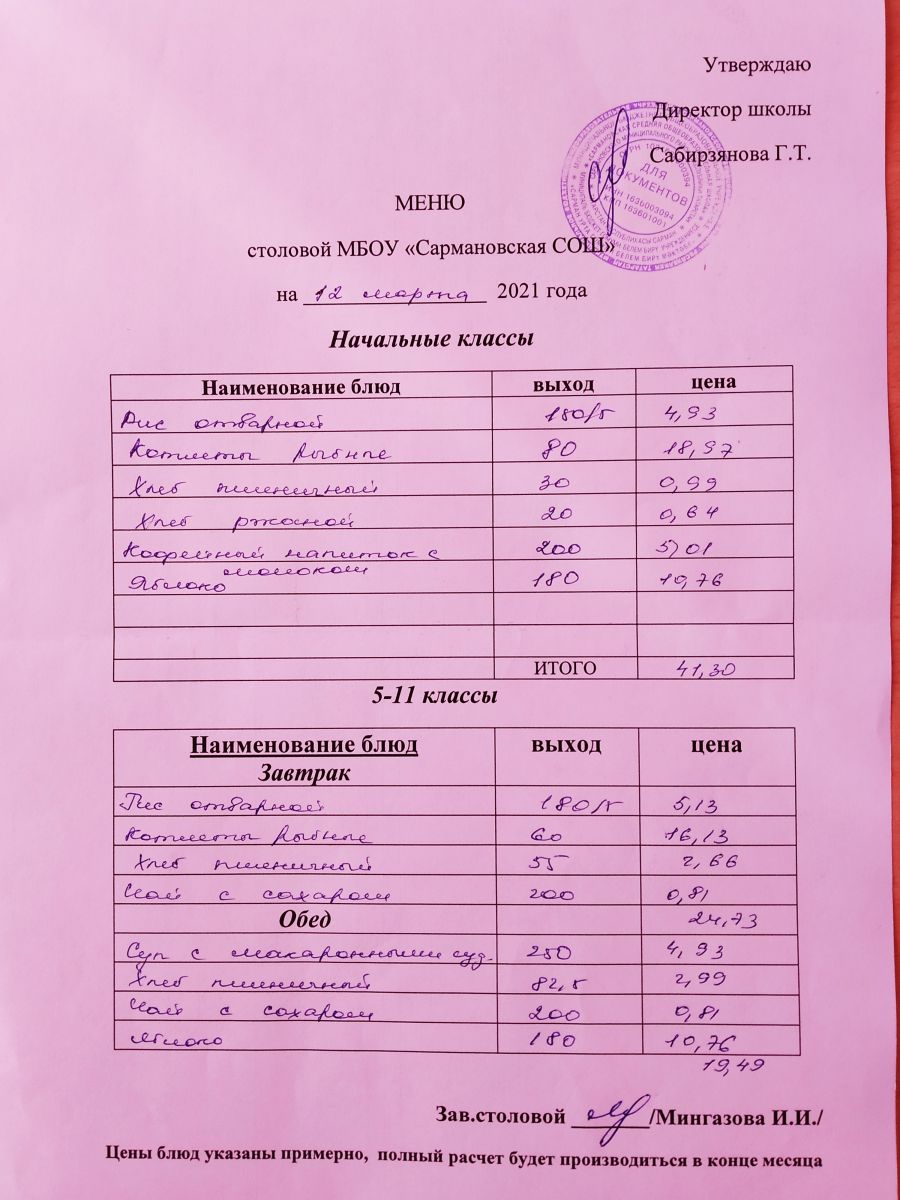 Утверждаю
Директор школы
Сабирзянова Г.Т.
ДЛЯ
ДОКУМЕНТОВ
ИНН 1636003094
КПП 163601001
МЕНЮ
столовой МБОУ «Сармановская СОШ»
на 12 марта 2021 года
Начальные классы
Наименование блюд выход цена
Рис отварной 180/5 4,93
Котлеты рыбные 80 18,97
Хлеб пшеничный 30 0,99
Хлеб ржаной 20 0,64
Кофейный напиток с молоком 200 5,01
Яблоко 180 10,76
ИТОГО 41,30
5-11 классы
Наименование блюд выход цена
Завтрак
Рис отварной 180/5 5,13
Котлеты рыбные 60 16,13
Хлеб пшеничный 55 2,66
Чай с сахаром 200 0,81
Обед 24,73
Суп с макаронными 250 4,93
Хлеб пшеничный 82,5 2,99
Чай с сахаром 200 0,81
Яблоко 180 10,76
19,49
Зав.столовой /Мингазова И.И./
Цены блюд указаны примерно, полный расчет будет производиться в конце месяца